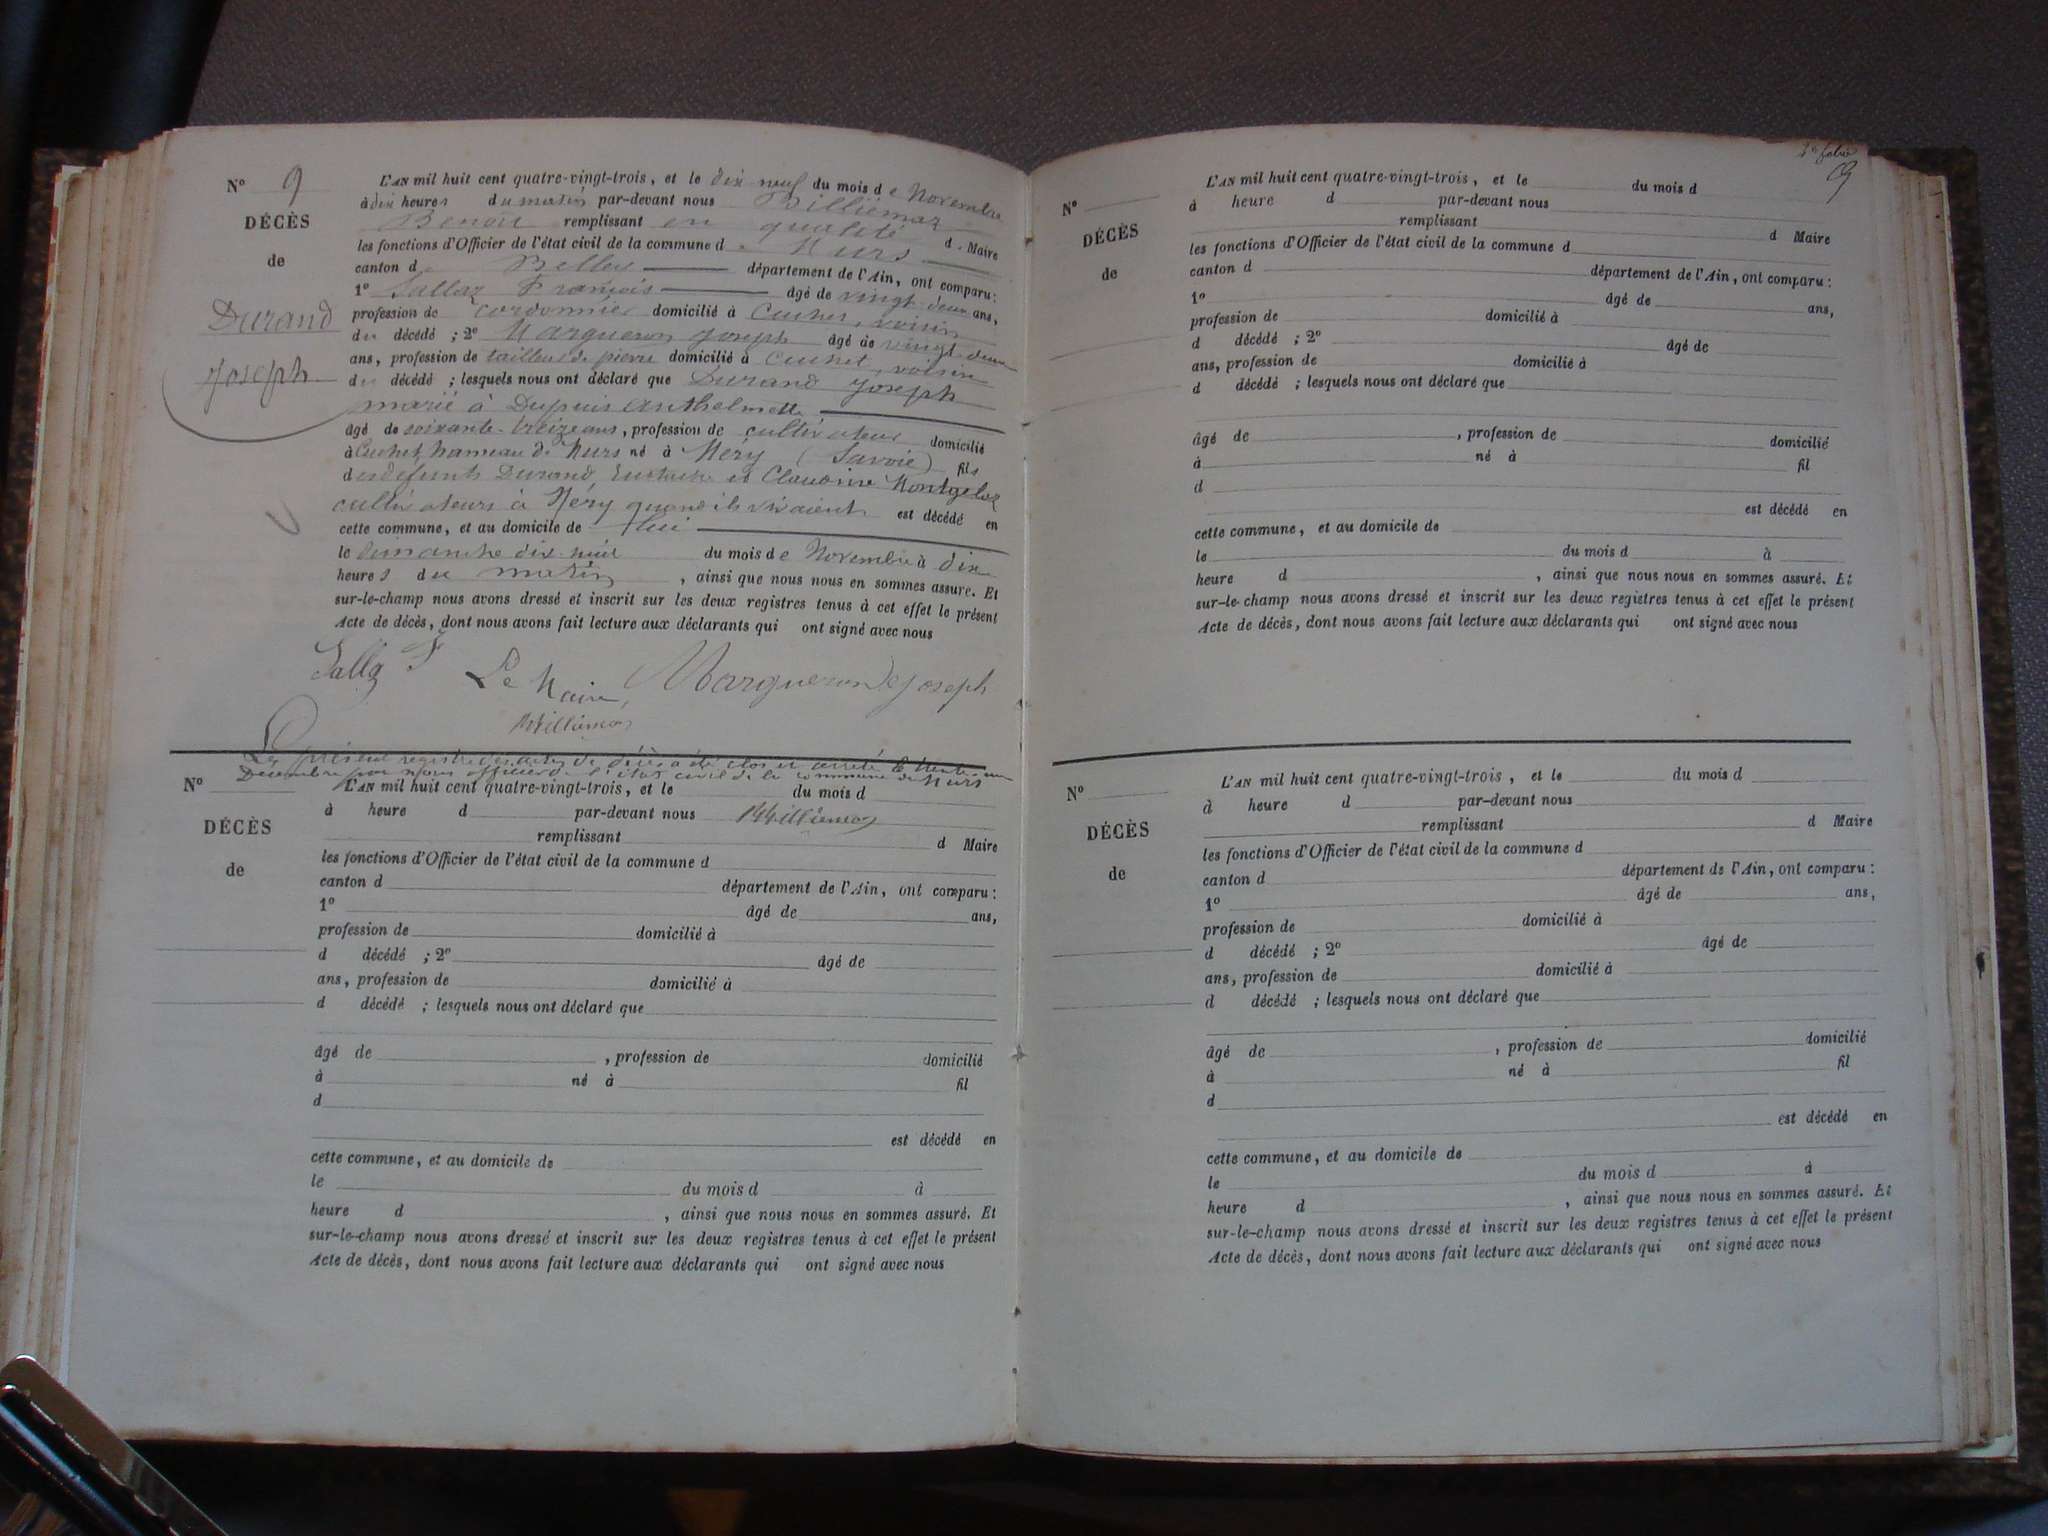 N° 9
DÉCÈS
de
Durand
Joseph
L'AN mil huit cent quatre-vingt-trois, et le dix neuf du mois de Novembre
à dix heures du matin par-devant nous Billiémaz
Benoit remplissant en qualité d Maire
les fonctions d'Officier de l'état civil de la commune d
canton d Belley département de l'Ain, ont comparu:
1° Sallaz François âgé de vingt deux ans,
profession de cordonnier domicilié à Cuchet, voisin
du décédé ; 2° Margueron Joseph âgé de vingt deux
ans, profession de tailleur de pierre domicilié à Cuchet, voisin
du décédé ; lesquels nous ont déclaré que Durand Joseph
marié à Dupuis Anthelmette
âgé de soixante-treize ans, profession de cultivateur domicilié
à Cuchet hameau de né à Méry (Savoie) fils
des défunts Durand, et Claudine
cultivateurs à Méry quand ils vivaient est décédé en
cette commune, et au domicile de lui
le dimanche dix-huit du mois de Novembre à dix
heures du matin, ainsi que nous nous en sommes assuré. Et
sur-le-champ nous avons dressé et inscrit sur les deux registres tenus à cet effet le présent
Acte de décès, dont nous avons fait lecture aux déclarants qui ont signé avec nous
Sallaz F Le Maire, Margueron Joseph
Billiémaz
Le présent registre des actes de décès a été clos et arrêté le trente-un
Décembre par nous officier de l'état civil de la commune de
N°
DÉCÈS
de
L'AN mil huit cent quatre-vingt-trois, et le du mois d
à heure d par-devant nous Billiémaz
remplissant d Maire
les fonctions d'Officier de l'état civil de la commune d
canton d département de l'Ain, ont comparu:
1° âgé de ans,
profession de domicilié à
d décédé ; 2° âgé de
ans, profession de domicilié à
d décédé ; lesquels nous ont déclaré que
âgé de , profession de domicilié
à né à fil
d
est décédé en
cette commune, et au domicile de
le du mois d à
heure d , ainsi que nous nous en sommes assuré. Et
sur-le-champ nous avons dressé et inscrit sur les deux registres tenus à cet effet le présent
Acte de décès, dont nous avons fait lecture aux déclarants qui ont signé avec nous
9
N°
DÉCÈS
de
L'AN mil huit cent quatre-vingt-trois, et le du mois d
à heure d par-devant nous
remplissant d Maire
les fonctions d'Officier de l'état civil de la commune d
canton d département de l'Ain, ont comparu:
1° âgé de ans,
profession de domicilié à
d décédé ; 2° âgé de
ans, profession de domicilié à
d décédé ; lesquels nous ont déclaré que
âgé de , profession de domicilié
à né à fil
d
est décédé en
cette commune, et au domicile de
le du mois d à
heure d , ainsi que nous nous en sommes assuré. Et
sur-le-champ nous avons dressé et inscrit sur les deux registres tenus à cet effet le présent
Acte de décès, dont nous avons fait lecture aux déclarants qui ont signé avec nous
N°
DÉCÈS
de
L'AN mil huit cent quatre-vingt-trois, et le du mois d
à heure d par-devant nous
remplissant d Maire
les fonctions d'Officier de l'état civil de la commune d
canton d département de l'Ain, ont comparu:
1° âgé de ans,
profession de domicilié à
d décédé ; 2° âgé de
ans, profession de domicilié à
d décédé ; lesquels nous ont déclaré que
âgé de , profession de domicilié
à né à fil
d
est décédé en
cette commune, et au domicile de
le du mois d à
heure d , ainsi que nous nous en sommes assuré. Et
sur-le-champ nous avons dressé et inscrit sur les deux registres tenus à cet effet le présent
Acte de décès, dont nous avons fait lecture aux déclarants qui ont signé avec nous